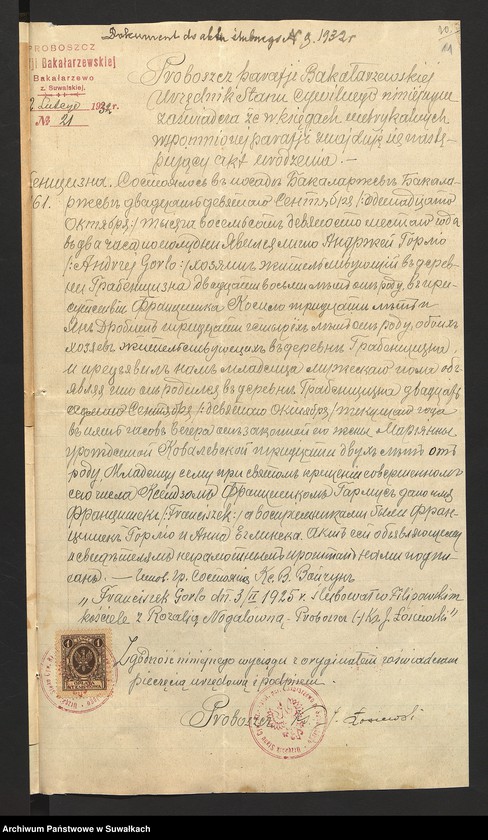 Dokument do aktu ślubnego № 9. 1932 r
PROBOSZCZ
ji Bakałarzewskiej
Bakałarzewo
z. Suwalskiej,
2 Lutego 1932 r.
№ 21
Proboszcz parafji Bakałarzewskiej
Urzędnik Stanu Cywilnego niniejszem
zaświadcza że w księgach metrykalnych
wspomnionej parafji znajduje się nastę-
pujący akt urodzenia. —
бенщизна. Состоялось въ посадѣ Бакаларжевѣ Бакала-
61. ржевѣ двадцать девятаго Сентября /: одинадцатаго
Октября :/ тысяча восемьсотъ девяносто шестаго года
въ два часа по полудни. Явился лично Андржей Горло
/: Andrzej Gorlo :/ хозяинъ жительствующій въ дерев-
ни Грабенщизна двадцати восьми лѣтъ отъ роду, въ при-
сутствіи Францишка Косило тридцати лѣтъ и
Янъ тридцати четырехъ лѣтъ отъ роду, обоихъ
хозяевъ жительствующихъ въ деревни Грабенщизна
и предъявилъ намъ младенца мужескаго пола объ-
являя что онъ родился въ деревни Грабенщизна двадцать
седьмаго Сентября /: девятаго Октября :/ текущаго года
въ пять часовъ вечера отъ законной его жены Марьянны
урожденной Ковалевской тридцати двухъ лѣтъ отъ
роду. Младенцу сему при святомъ крещеніи совершенномъ
сего числа Ксендзомъ Францишкомъ дано имя
Францишекъ /: Franciszek :/ а воспремниками были Фран-
цишекъ Горло и Анна. Актъ сей объявляющему
и свидѣтелямъ неграмотнымъ прочитанъ нами подпи-
санъ. — Гр. Состоянія Кс. В.
„Franciszek Gorlo dn. 3/II 1925 r. ślubował w Filipowskim
kościele z Rozalją Nogalówną. Proboszcz (-) Ks J. Łosiewski"
Zgodność niniejszego wyciągu z oryginałem zaświadczam
pieczęcią urzędową i podpisem.
Proboszcz Ks. J. Łosiewski
Archiwum Państwowe w Suwałkach